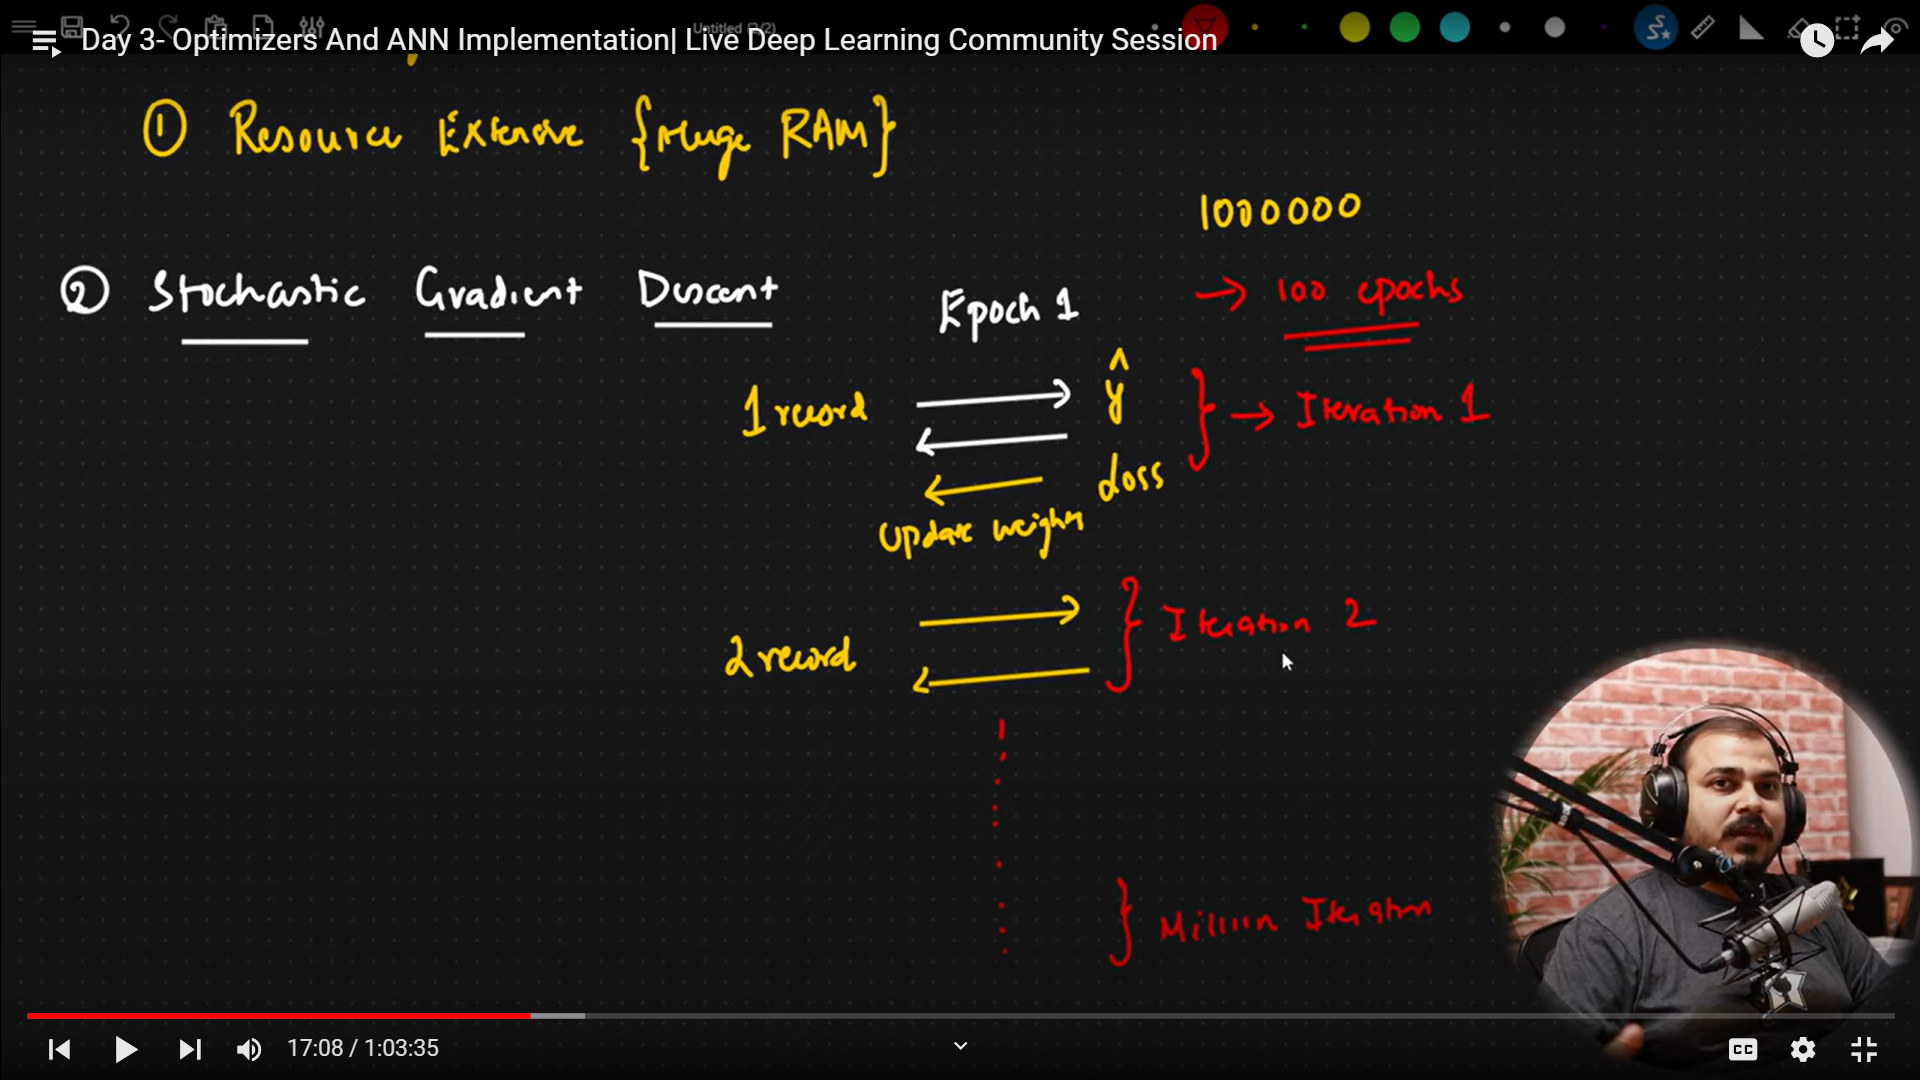 Untitled (2/2)
Day 3- Optimizers And ANN Implementation| Live Deep Learning Community Session
① Resource Extensive {Huge RAM}
1000000
② Stochastic Gradient Descent
Epoch 1
→ 100 epochs
1 record
ŷ
→ Iteration 1
Loss
Update weights
2 record
Iteration 2
Million Iteration
17:08 / 1:03:35
CC